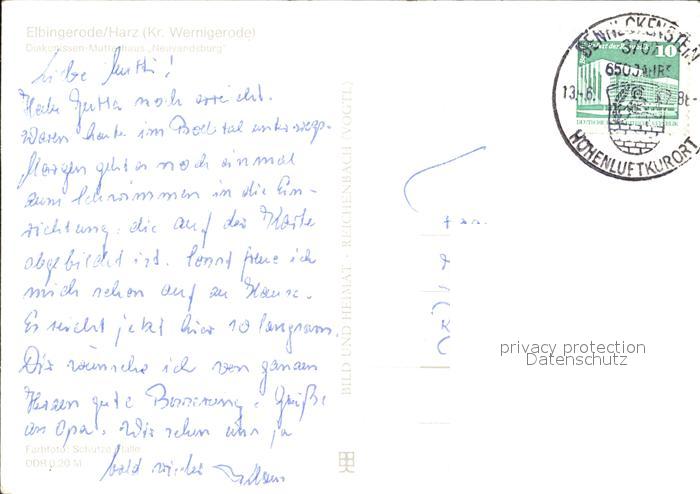 Elbingerode/Harz (Kr. Wernigerode)
Diakonissen-Mutterhaus „Neuvandsburg"
Liebe Mutti!
Habe Jutta noch erreicht.
Waren heute im Bodetal unterwegs.
Morgen geht es noch einmal
zum Schwimmen in die Ein-
richtung, die auf der Karte
abgebildet ist. Sonst freue ich
mich schon auf zu Hause.
Es reicht jetzt hier so langsam.
Dir wünsche ich von ganzem
Herzen gute Besserung. Grüße
an Opa. Wir sehen uns ja
bald wieder
Farbfoto: Schütze, Halle
DDR 0,20 M
BILD UND HEIMAT · REICHENBACH (VOGTL)
BENNECKENSTEIN
3707
650 JAHRE
13.-6.
HÖHENLUFTKURORT
10
privacy protection
Datenschutz